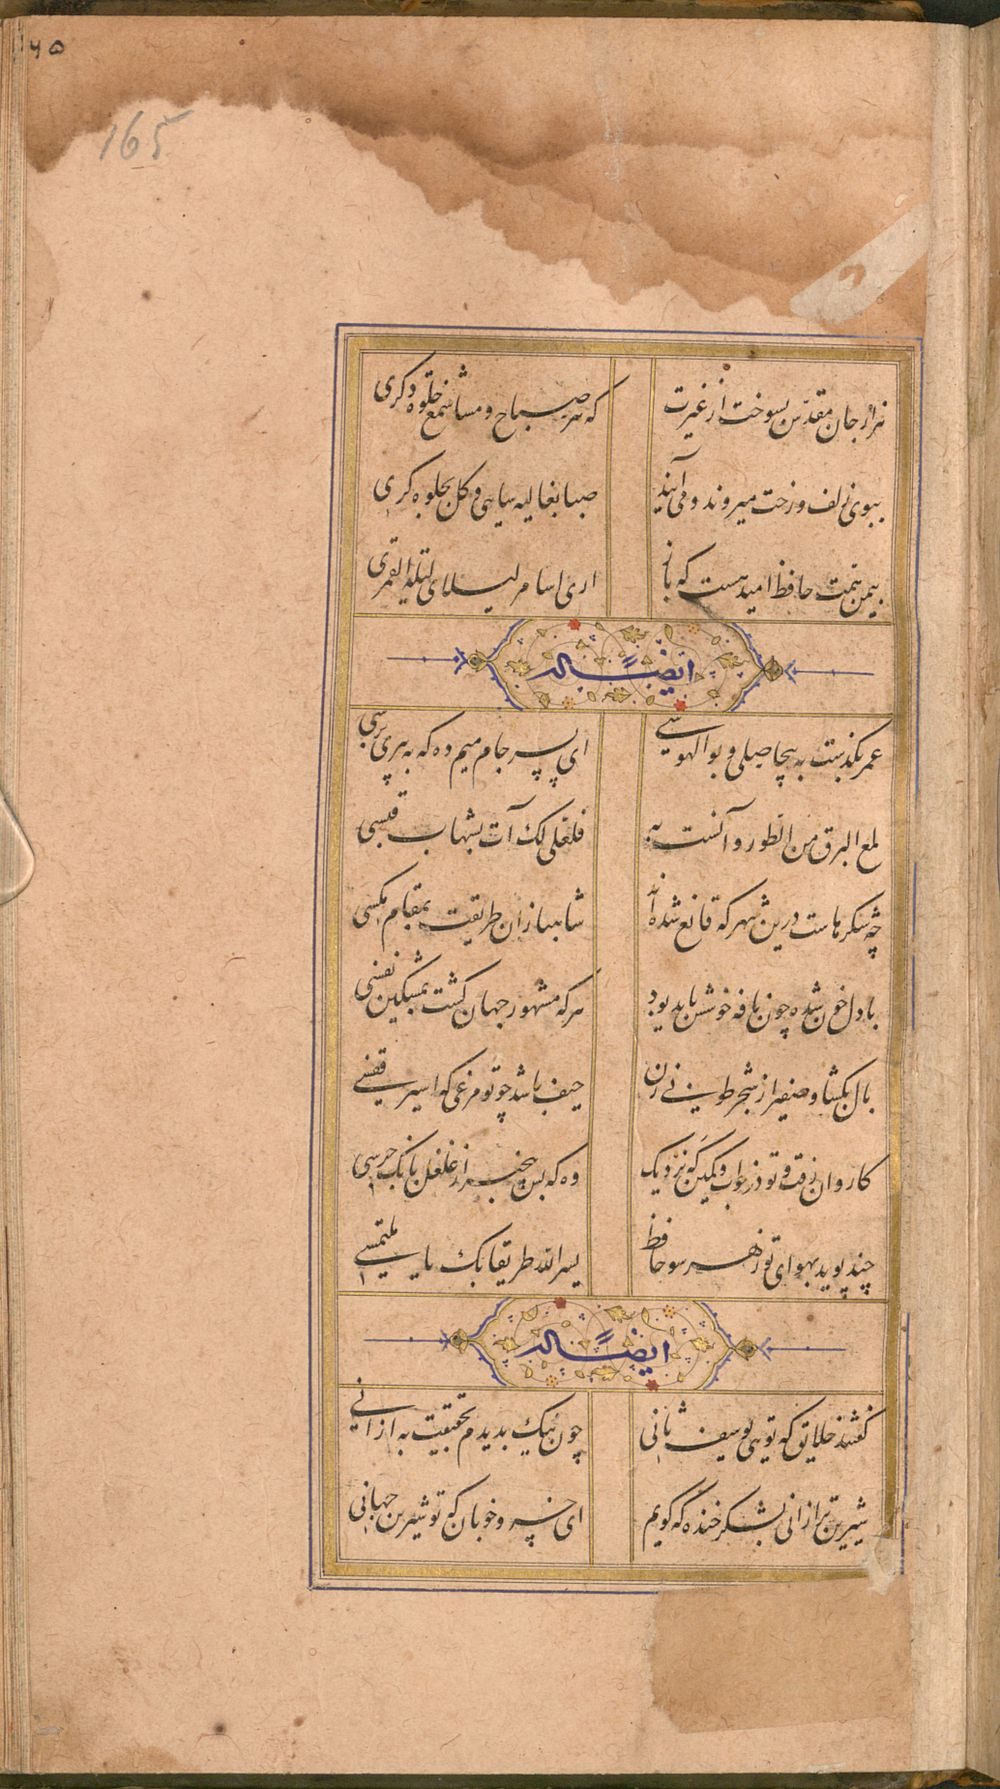 ۶۵
165
هزار جان مقدس بسوخت از غیرت
که هر صباح و مسا شمع خلوه دکری
ببوی زلف و رخت میروند و می آیند
صبا بغالیه سایی و کل بجلوه کری
بیمن همت حافظ امید هست که باز
اری اسامر لیلای لیلة القمری
ایضاً له
عمر بکذشت به بیحاصلی و بوالهوسی
ای پسر جام میم ده که به پیری برسی
لمع البرق من الطور و آنست به
فلعلی لک آت بشهاب قبسی
چه شکرهاست درین شهر که قانع شده اند
شاهبازان طریقت بمقام مکسی
با دل خون شده چون نافه خوشش باید بود
هر که مشهور جهان کشت بمشکین نفسی
بال بکشا و صفیر از شجر طوبی زن
حیف باشد چو تو مرغی که اسیر قفسی
کاروان رفت و تو در خواب و کمین که نزدیک
وه که بس بیخبر از غلغل بانک جرسی
چند پوید بهوای تو ز هر سو حافظ
یسر الله طریقا بک یا ملتمسی
ایضاً له
کفتند خلایق که تویی یوسف ثانی
چون نیک بدیدم بحقیقت به از آنی
شیرین تر از آنی بشکر خنده که کویم
ای خسرو خوبان که تو شیرین جهانی